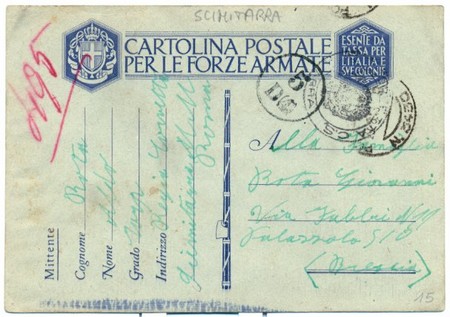 SCIMITARRA
CARTOLINA POSTALE
PER LE FORZE ARMATE
ESENTE DA
TASSA PER
L'ITALIA E
SVE COLONIE
Mittente
Cognome Rota
Nome Aldo
Grado
Indirizzo Regia Corvetta
Scimitarra
Roma
Alla Famiglia
Rota Giovanni
Via
Palazzolo S/O
(Brescia)
15